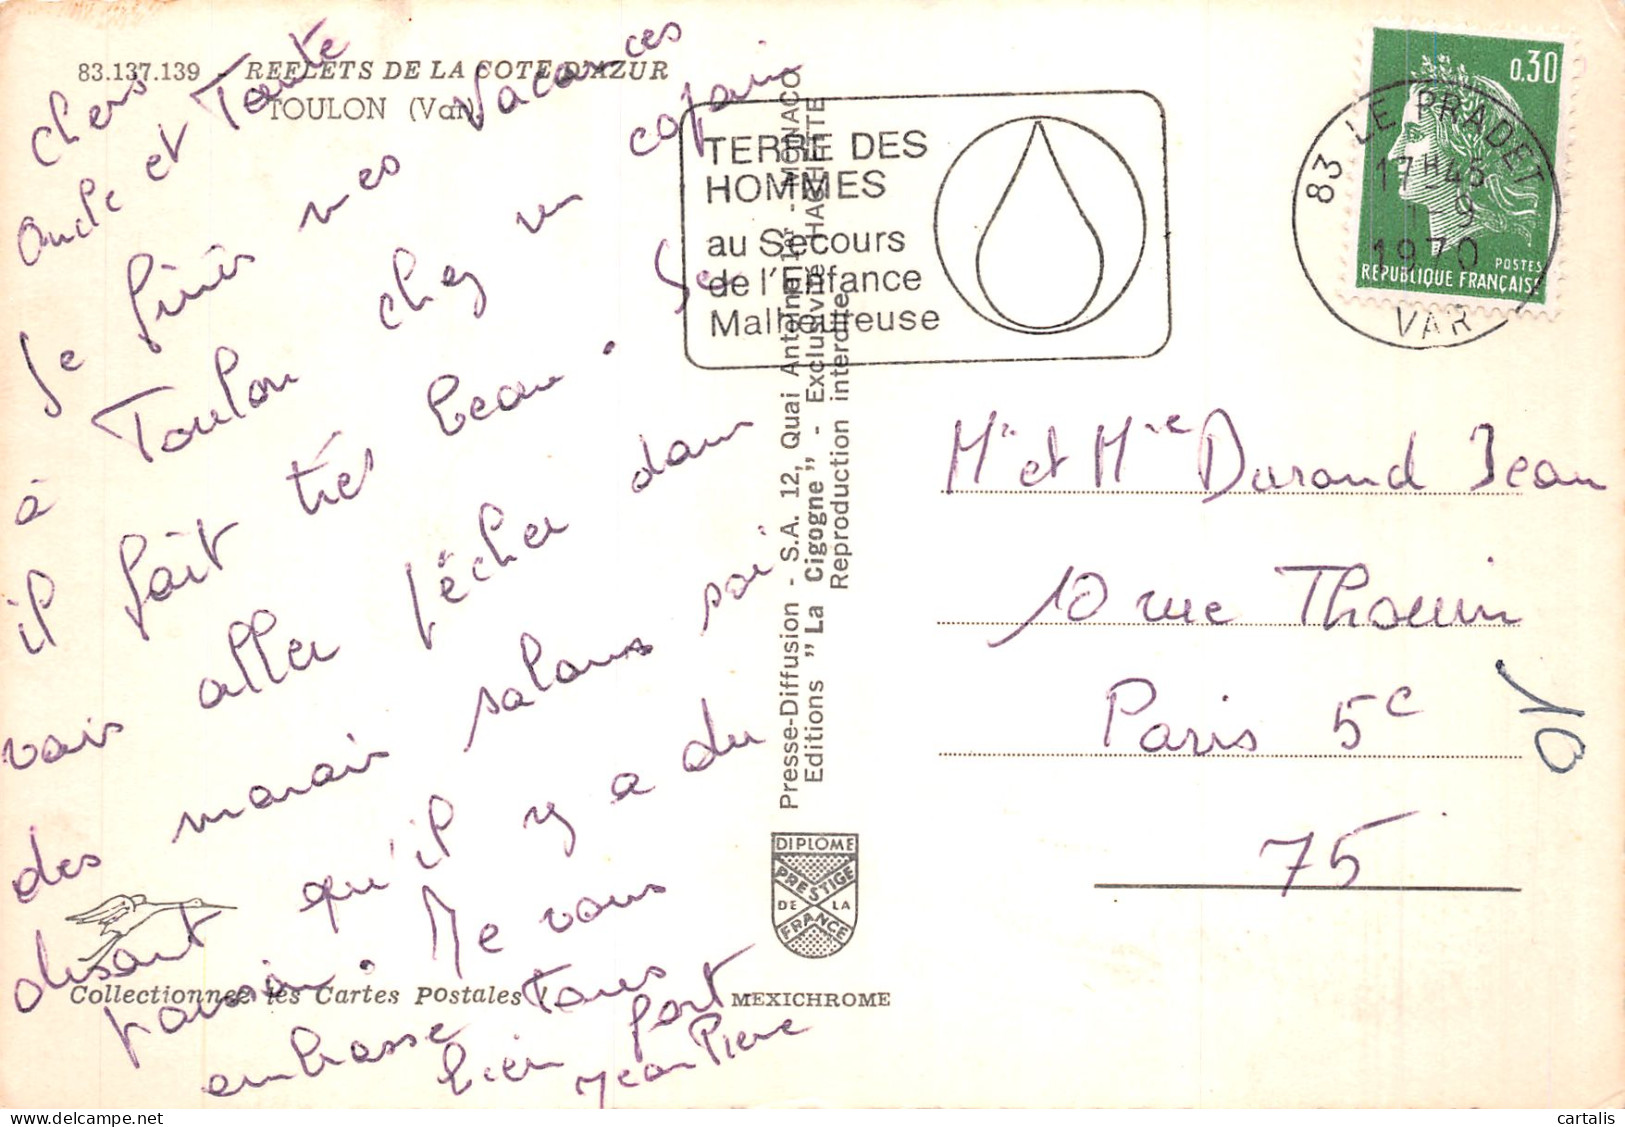 83.137.139 - REFLETS DE LA COTE D'AZUR
TOULON (Var)
chers
oncle et Tante
Je finis mes vacances
à Toulon chez un copain
il fait très beau. Je
vais aller pêcher dans
des marais salans soi
disant qu'il y a du
poisson. Je vous
embrasse Tous
bien fort
Jean Pierre
Collectionnez les Cartes Postales !
MEXICHROME
Presse-Diffusion - S.A. 12, Quai Antoine 1er - MONACO
Editions " La Cigogne " - Exclusivité HACHETTE
Reproduction interdite
DIPLOME
PRESTIGE
DE LA
FRANCE
TERRE DES
HOMMES
au Secours
de l'Enfance
Malheureuse
83 LE PRADET
17H45
1-9
1970
VAR
0,30
POSTES
REPUBLIQUE FRANÇAISE
Mr et Mme Durand Jean
10 rue Thouin
Paris 5e
75
10
cartalis